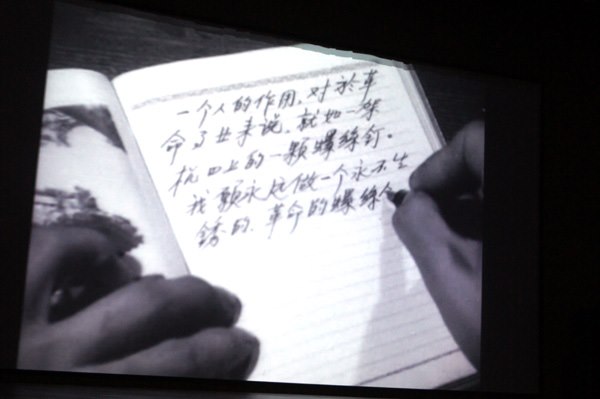 一个人的作用,对於革
命事业来说,就如一架
机器上的一颗螺絲钉。
我願永远做一个永不生
锈的、革命的螺絲